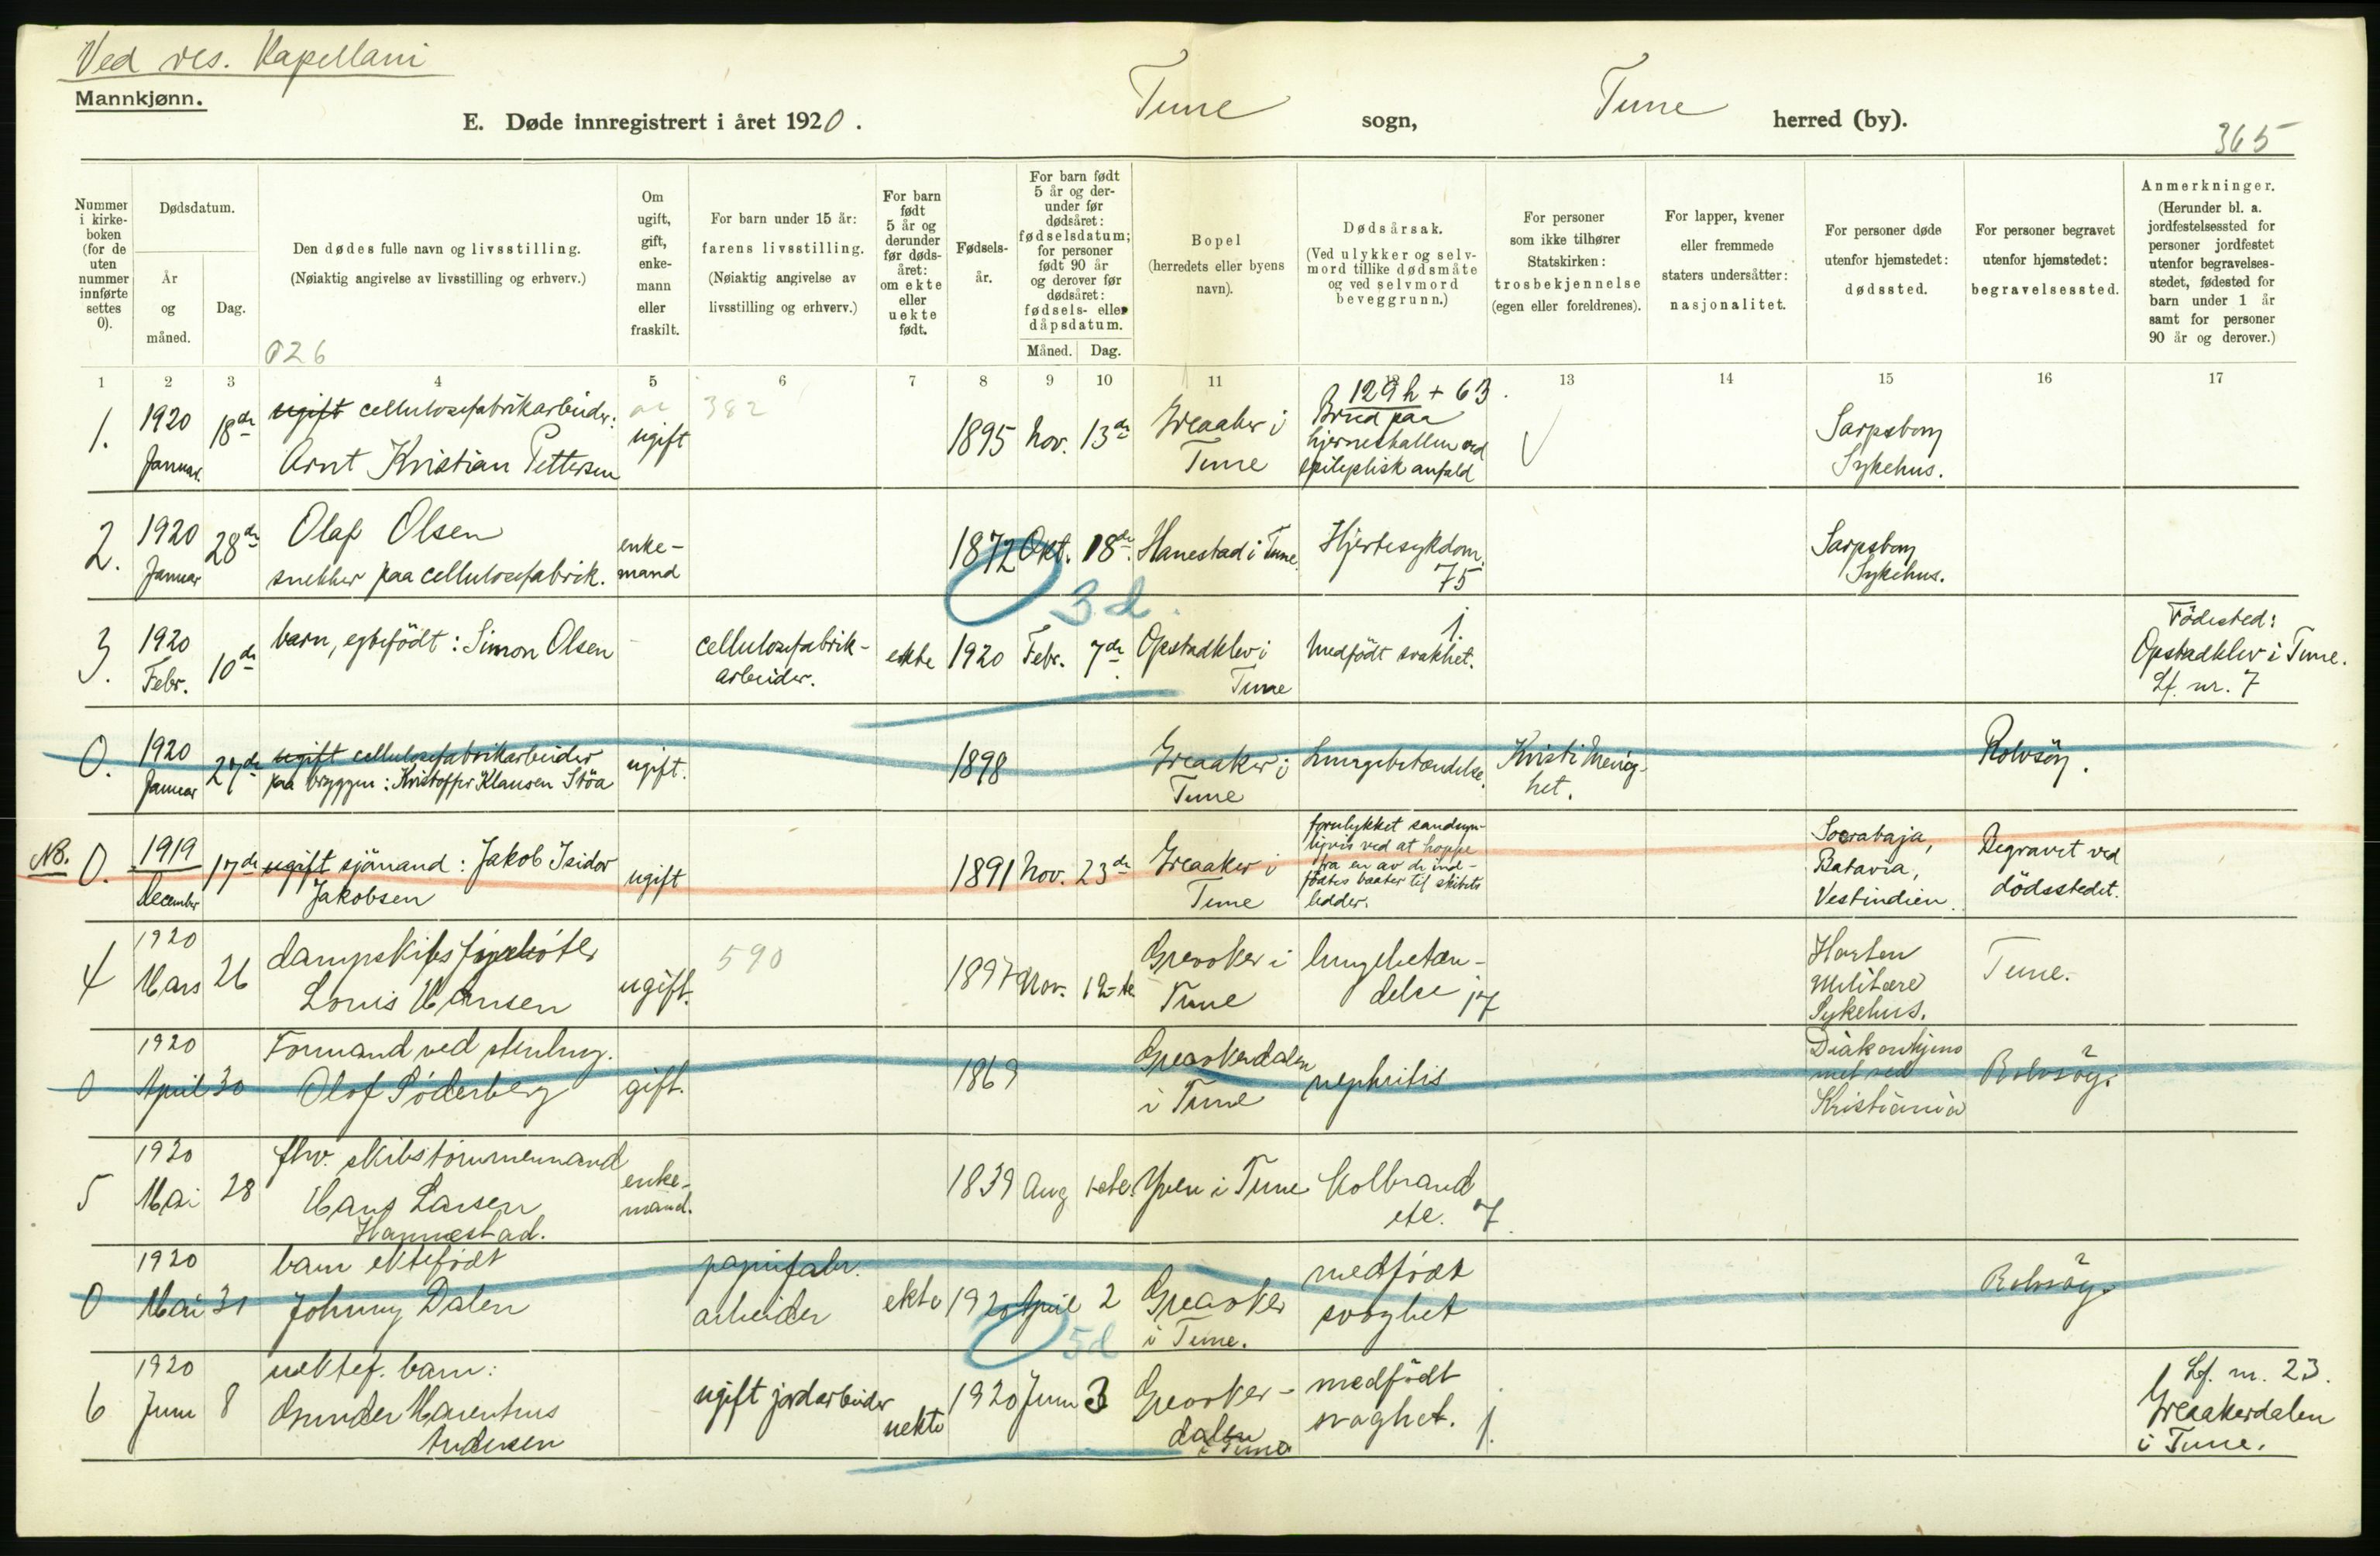 Ved res. Kapellani
Mannkjønn.
E. Døde innregistrert i året 1920.
Tune sogn,
Tune herred (by).
365
Nummer i kirke-boken (for de uten nummer innførte settes 0).
Dødsdatum.
År og måned.
Dag.
Den dødes fulle navn og livsstilling.
(Nøiaktig angivelse av livsstilling og erhverv.)
026
Om ugift, gift, enke-mann eller fraskilt.
For barn under 15 år:
farens livsstilling.
(Nøiaktig angivelse av livsstilling og erhverv.)
For barn født 5 år og derunder før døds-året: om ekte eller uekte født.
Fødsels-år.
For barn født 5 år og der-under før dødsåret: fødselsdatum; for personer født 90 år og derover før dødsåret: fødsels- eller dåpsdatum.
Måned. Dag.
Bopel
(herredets eller byens navn).
Dødsårsak.
(Ved ulykker og selv-mord tillike dødsmåte og ved selvmord beveggrunn.)
For personer som ikke tilhører Statskirken: trosbekjennelse (egen eller foreldrenes).
For lapper, kvener eller fremmede staters undersåtter: nasjonalitet.
For personer døde utenfor hjemstedet: dødssted.
For personer begravet utenfor hjemstedet: begravelsessted.
Anmerkninger.
(Herunder bl. a. jordfestelsessted for personer jordfestet utenfor begravelses-stedet, fødested for barn under 1 år samt for personer 90 år og derover.)
1 2 3 4 5 6 7 8 9 10 11 12 13 14 15 16 17
1. 1920 Januar. 18de ugift cellulosefabrikarbeider: Arnt Kristian Pettersen ugift 382 1895 Nov. 13de Greaaker i Tune 129h + 63. Brud paa hjerneskallen ved epileptisk anfald Sarpsborg Sykehus.
2. 1920 Januar 28de Olaf Olsen snekker paa cellulosefabrik. enke-mand 1872 Okt. 18de Hanestad i Tune. Hjertesykdom. 75 Sarpsborg Sykehus.
3 d.
3. 1920 Febr. 10de barn, egtefödt: Simon Olsen - cellulosefabrik-arbeider. ekte 1920 Febr. 7de Opstadklev i Tune Medfödt svakhet. 1. Födested: Opstadklev i Tune. Lf. nr. 7
0. 1920 Januar 27de ugift cellulosefabrikarbeider paa bryggen: Kristoffer Klausen Stöa ugift. 1898 Greaaker i Tune Lungebetændelse. Kristi Menig-het. Rolvsöy.
NB. 0. 1919 December 17de ugift sjömand: Jakob Isidor Jakobsen ugift 1891 Nov. 23de Greaaker i Tune forulykket sandsyn-ligvis ved at hoppe fra en av de ind-födtes baater til skibets ledder. Soerabaja, Batavia, Vestindien. Begravet ved dödsstedet.
4 1920 Mars 26 dampskibsfyrböter Louis Hansen ugift. 590 1897 Nov. 12-te Greaaker i Tune lungebetæn-delse 17 Horten Militære Sykehus. Tune.
0 1920 April 30 Formand ved stenhug. Olof Söderberg gift. 1869 Greaakerdalen i Tune nephritis Diakonhjemmet ved Kristiania Rolvsöy.
5 1920 Mai 28 fhv. skibstömmermand Hans Larsen Hannestad. enke-mand. 1839 Aug 1ste. Yven i Tune Kolbrand etc. 7.
0 1920 Mai 31 barn ektefödt Johnny Dalen papirfabr. arbeider ekte 1920 April 2 Greaaker i Tune. medfödt svaghet Rolvsöy.
5 d
6 1920 Juni 8 uektef. barn: Gunder Marenhus Andersen ugift jordarbeider uekte 1920 Juni 3 Greaaker-dalen i Tune medfödt svaghet. 1. Lf. nr. 23. Greaakerdalen i Tune.